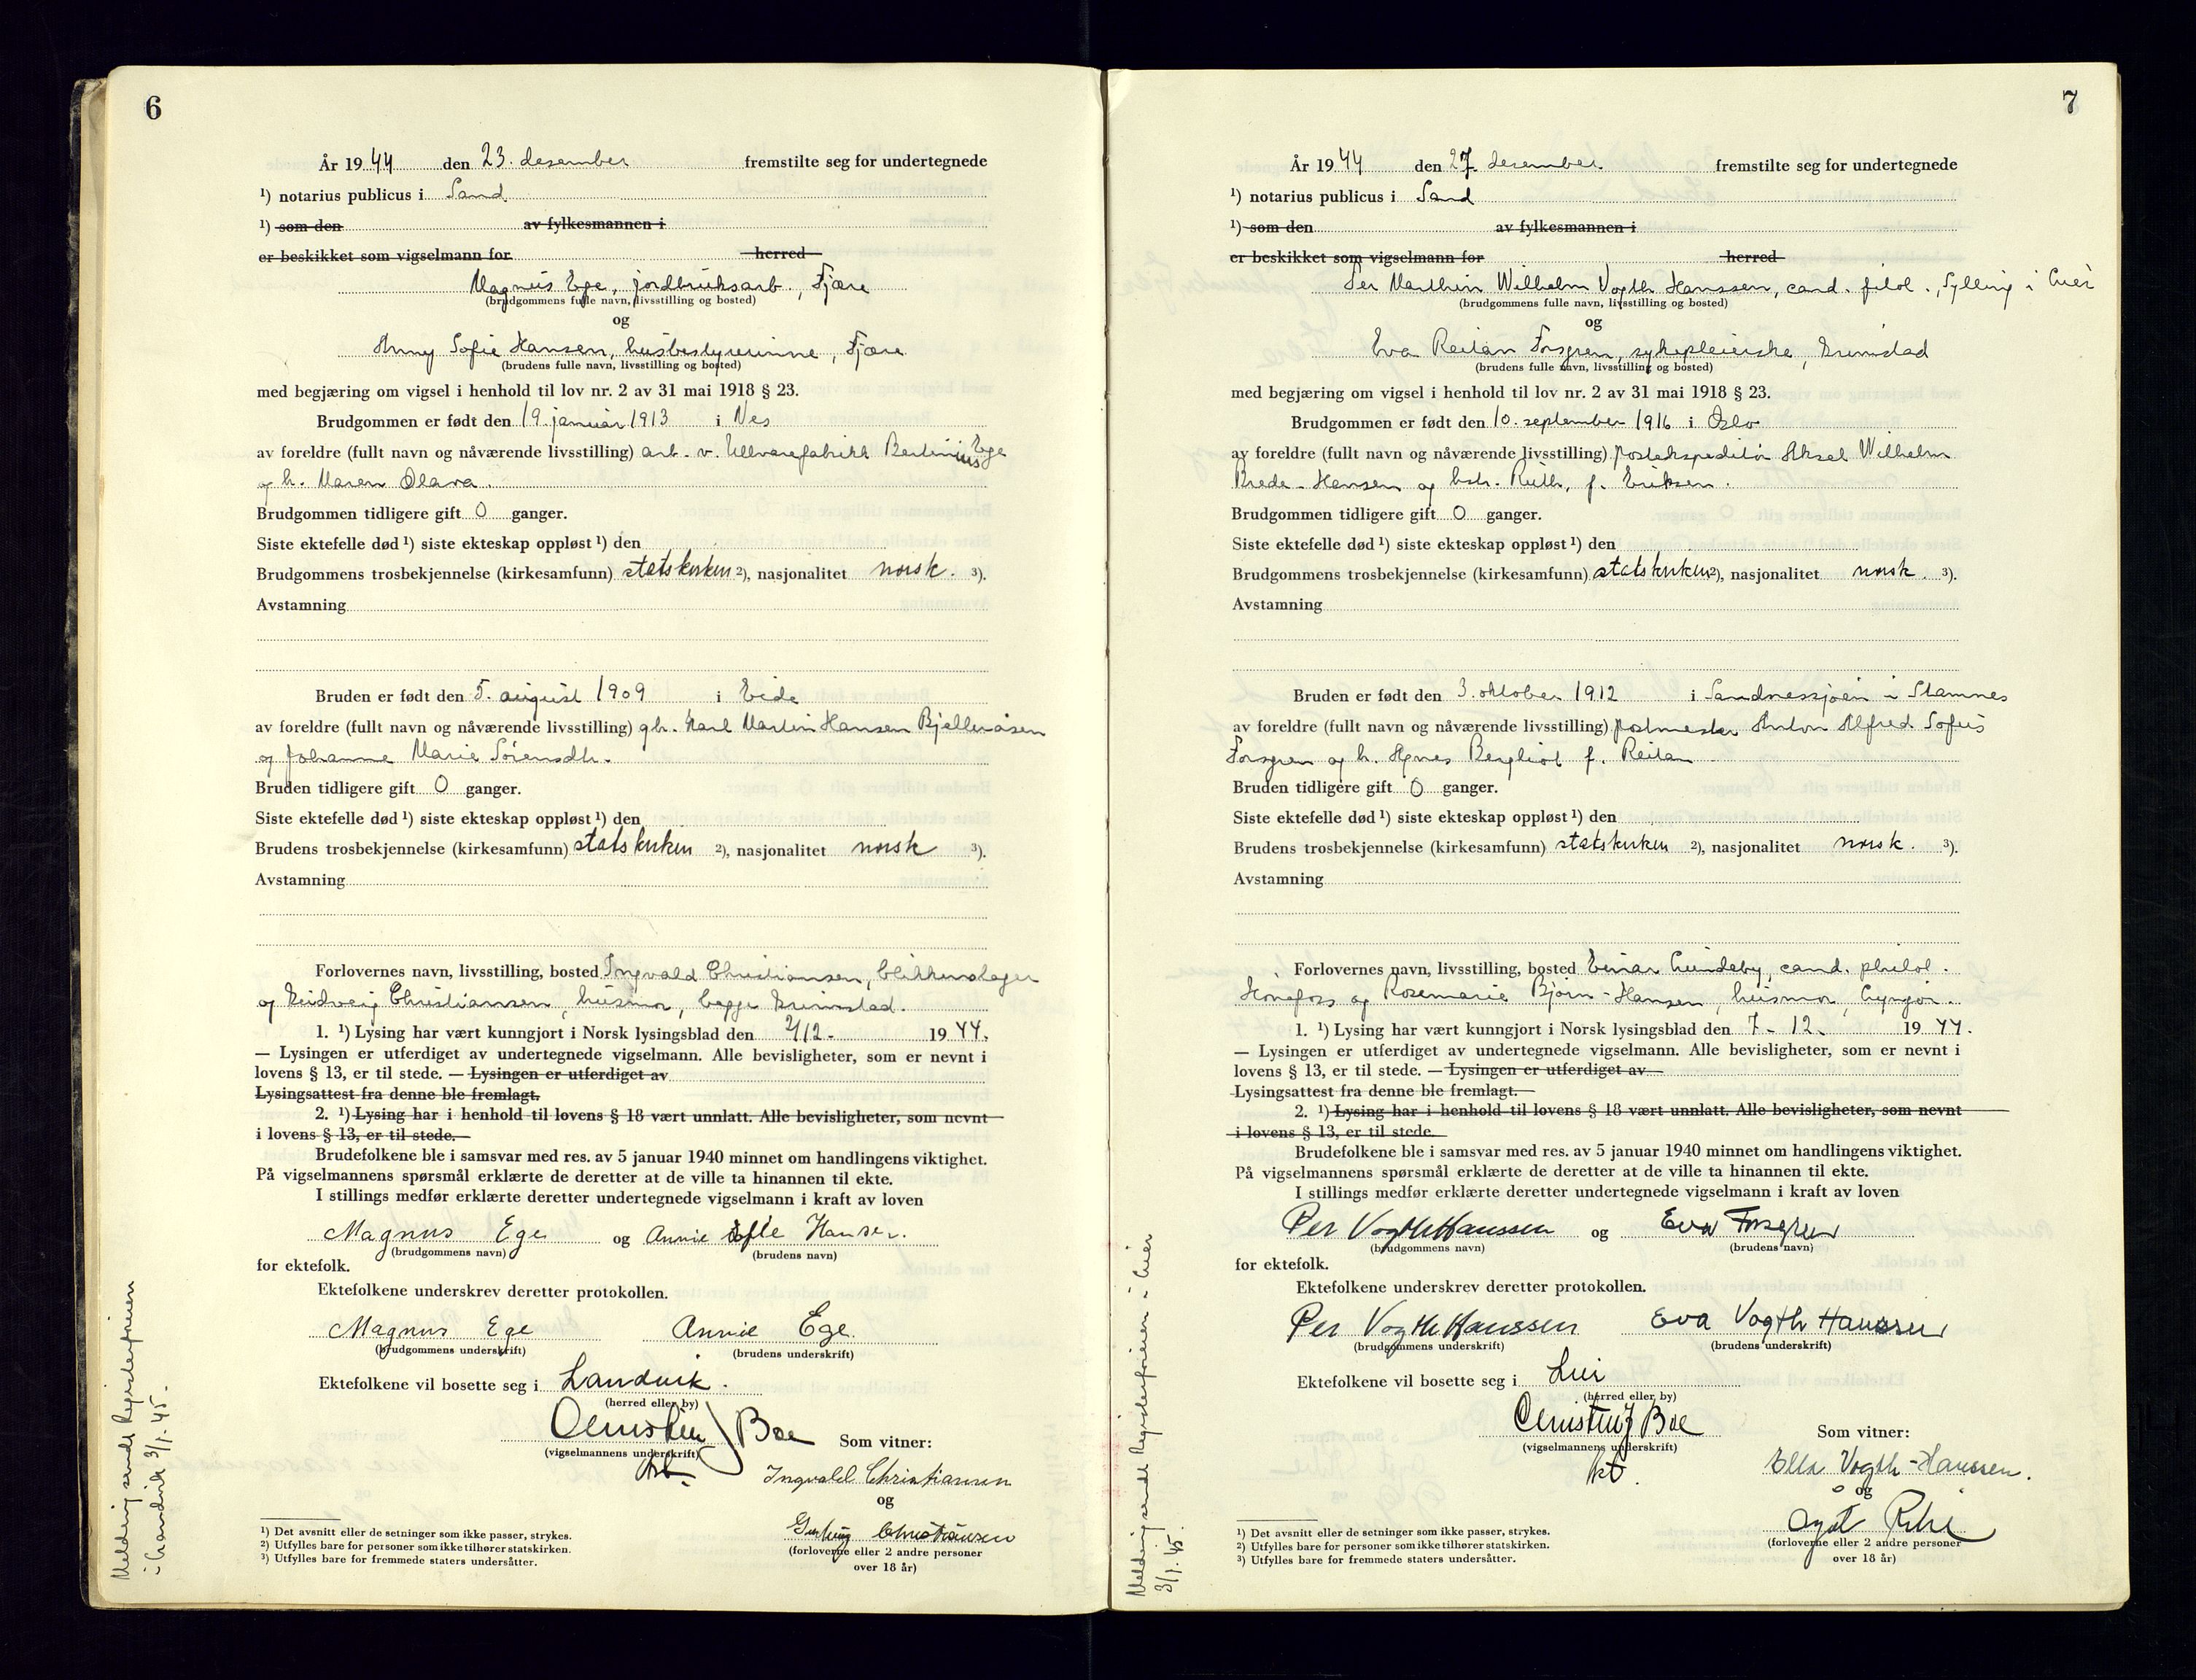 6
År 19 44 den 23. desember fremstilte seg for undertegnede
¹) notarius publicus i Sand
¹) som den av fylkesmannen i
er beskikket som vigselmann for herred
Magnus Ege, jordbruksarb., Fjære
(brudgommens fulle navn, livsstilling og bosted)
og
Anny Sofie Hansen, husbestyrerinne, Fjære
(brudens fulle navn, livsstilling og bosted)
med begjæring om vigsel i henhold til lov nr. 2 av 31 mai 1918 § 23.
Brudgommen er født den 19. januar 1913 i Nes
av foreldre (fullt navn og nåværende livsstilling) arb. v. Ullvarefabrikk Bertinius Ege
og h. Maren Olava.
Brudgommen tidligere gift 0 ganger.
Siste ektefelle død ¹) siste ekteskap oppløst ¹) den
Brudgommens trosbekjennelse (kirkesamfunn) statskirken ²), nasjonalitet norsk. ³).
Avstamning
Bruden er født den 5. august 1909 i Eide
av foreldre (fullt navn og nåværende livsstilling) gbr. Karl Martin Hansen Bjelleråsen
og Johanne Marie Sörensdtr.
Bruden tidligere gift 0 ganger.
Siste ektefelle død ¹) siste ekteskap oppløst ¹) den
Brudens trosbekjennelse (kirkesamfunn) statskirken ²), nasjonalitet norsk ³).
Avstamning
Forlovernes navn, livsstilling, bosted Ingvald Christiansen, blikkenslager
og Christiansen, husmor, begge Grimstad.
1. ¹) Lysing har vært kunngjort i Norsk lysingsblad den 2/12- 19 44.
— Lysingen er utferdiget av undertegnede vigselmann. Alle bevisligheter, som er nevnt i
lovens § 13, er til stede. — Lysingen er utferdiget av
Lysingsattest fra denne ble fremlagt.
2. ¹) Lysing har i henhold til lovens § 18 vært unnlatt. Alle bevisligheter, som nevnt
i lovens § 13, er til stede.
Brudefolkene ble i samsvar med res. av 5 januar 1940 minnet om handlingens viktighet.
På vigselmannens spørsmål erklærte de deretter at de ville ta hinannen til ekte.
I stillings medfør erklærte deretter undertegnede vigselmann i kraft av loven
Magnus Ege og Annie Hansen.
(brudgommens navn) (brudens navn)
for ektefolk.
Ektefolkene underskrev deretter protokollen.
Magnus Ege Annie Ege.
(brudgommens underskrift) (brudens underskrift)
Ektefolkene vil bosette seg i Landvik.
(herred eller by)
Boe Som vitner:
(vigselmannens underskrift)
Ingvald Christiansen
og
Christiansen
(forloverne eller 2 andre personer
over 18 år)
¹) Det avsnitt eller de setninger som ikke passer, strykes.
²) Utfylles bare for personer som ikke tilhører statskirken.
³) Utfylles bare for fremmede staters undersåtter.
Melding sendt Registerføreren
i Landvik 3/1.45.
7
År 19 44 den 27. desember fremstilte seg for undertegnede
¹) notarius publicus i Sand
¹) som den av fylkesmannen i
er beskikket som vigselmann for herred
Per Marthin Wilhelm Vogth Hanssen, cand. filol., Sylling i Lier
(brudgommens fulle navn, livsstilling og bosted)
og
Eva Reitan Forsgren, sykepleierske, Grimstad
(brudens fulle navn, livsstilling og bosted)
med begjæring om vigsel i henhold til lov nr. 2 av 31 mai 1918 § 23.
Brudgommen er født den 10. september 1916 i Oslo
av foreldre (fullt navn og nåværende livsstilling) postekspeditör Aksel Wilhelm
Brede-Hansen og hstr. Ruth, f. Eriksen.
Brudgommen tidligere gift 0 ganger.
Siste ektefelle død ¹) siste ekteskap oppløst ¹) den
Brudgommens trosbekjennelse (kirkesamfunn) statskirken ²), nasjonalitet norsk. ³).
Avstamning
Bruden er født den 3. oktober 1912 i Sandnessjöen i Stamnes
av foreldre (fullt navn og nåværende livsstilling) postmester Anton Alfred Sofus
Forsgren og h. Agnes Bergliot f. Reitan
Bruden tidligere gift 0 ganger.
Siste ektefelle død ¹) siste ekteskap oppløst ¹) den
Brudens trosbekjennelse (kirkesamfunn) statskirken ²), nasjonalitet norsk. ³).
Avstamning
Forlovernes navn, livsstilling, bosted Einar Lundeby, cand. philol.
Hönefoss og Rosemarie Björn-Hansen, husmor, Lyngör.
1. ¹) Lysing har vært kunngjort i Norsk lysingsblad den 7-12- 19 44.
— Lysingen er utferdiget av undertegnede vigselmann. Alle bevisligheter, som er nevnt i
lovens § 13, er til stede. — Lysingen er utferdiget av
Lysingsattest fra denne ble fremlagt.
2. ¹) Lysing har i henhold til lovens § 18 vært unnlatt. Alle bevisligheter, som nevnt
i lovens § 13, er til stede.
Brudefolkene ble i samsvar med res. av 5 januar 1940 minnet om handlingens viktighet.
På vigselmannens spørsmål erklærte de deretter at de ville ta hinannen til ekte.
I stillings medfør erklærte deretter undertegnede vigselmann i kraft av loven
Per Vogth Hanssen og Eva Forsgren
(brudgommens navn) (brudens navn)
for ektefolk.
Ektefolkene underskrev deretter protokollen.
Per Vogth Hanssen Eva Vogth Hanssen
(brudgommens underskrift) (brudens underskrift)
Ektefolkene vil bosette seg i Lier
(herred eller by)
Boe Som vitner:
(vigselmannens underskrift)
Ella Vogth-Hanssen.
og
(forloverne eller 2 andre personer
over 18 år)
¹) Det avsnitt eller de setninger som ikke passer, strykes.
²) Utfylles bare for personer som ikke tilhører statskirken.
³) Utfylles bare for fremmede staters undersåtter.
Melding sendt Registerføreren i Lier
3/1.45.